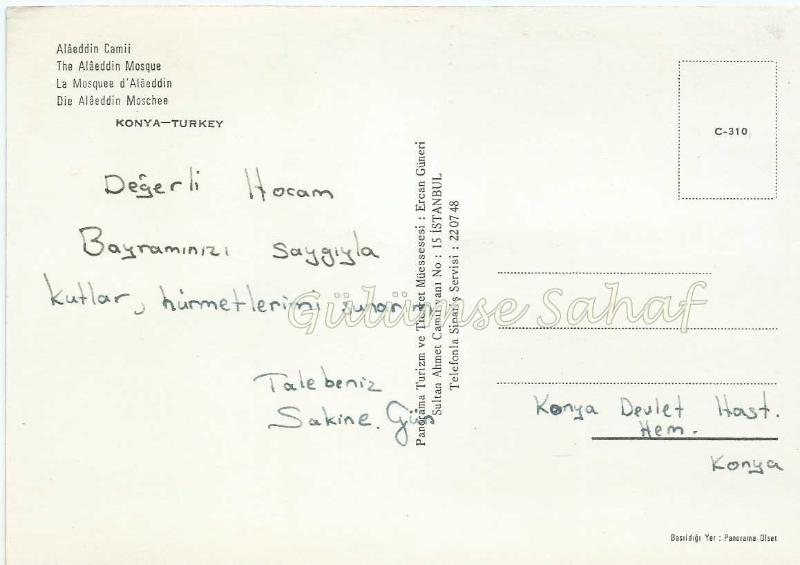 Alâeddin Camii
The Alâeddin Mosque
La Mosquee d'Alâeddin
Die Alâeddin Moschee
KONYA—TURKEY
Değerli Hocam
Bayramınızı saygıyla
kutlar, hürmetlerimi sunarım
Talebeniz
Sakine. Gün
Panorama Turizm ve Ticaret Müessesesi : Ercan Güneri
Sultan Ahmet Camii yanı No : 15 İSTANBUL
Telefonla Sipariş Servisi : 22 07 48
C-310
Gülümse Sahaf
Konya Devlet Hast.
Hem.
Konya
Basıldığı Yer : Panorama Ofset